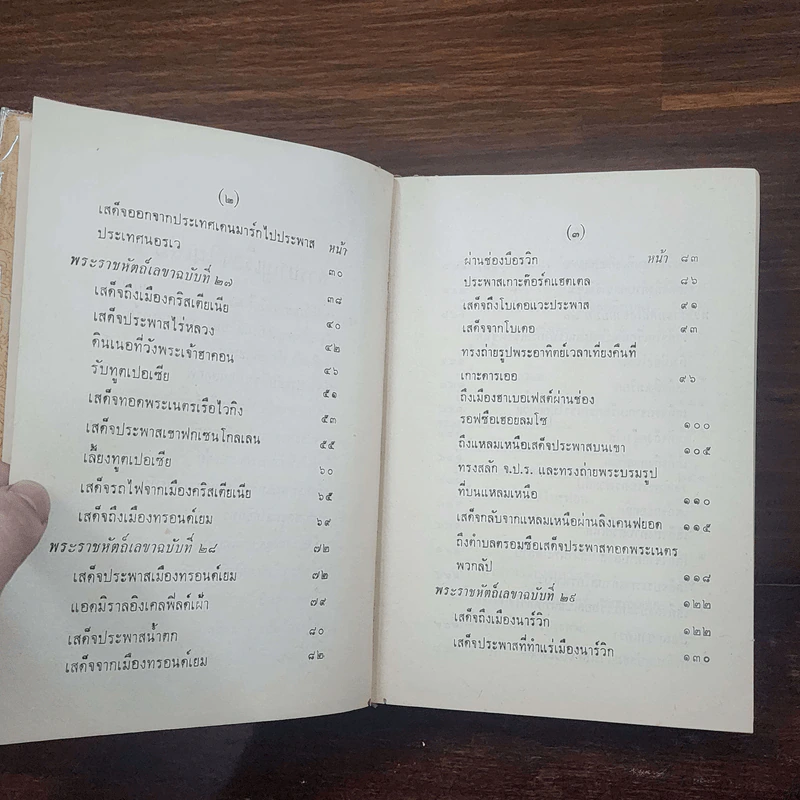 (๒)
หน้า
เสด็จออกจากประเทศเดนมาร์กไปประพาส
ประเทศนอรเว ๓๐
พระราชหัตถ์เลขาฉบับที่ ๒๗ ๓๘
เสด็จถึงเมืองคริสเตียเนีย ๔๐
เสด็จประพาสไร่หลวง ๔๒
ดินเนอที่วังพระเจ้าฮาคอน ๔๖
รับทูตเปอเซีย ๕๑
เสด็จทอดพระเนตรเรือไวกิง ๕๓
เสด็จประพาสเขาฟกเซนโกลเลน ๕๕
เลี้ยงทูตเปอเซีย ๖๐
เสด็จรถไฟจากเมืองคริสเตียเนีย ๖๕
เสด็จถึงเมืองทรอนด์เยม ๖๙
พระราชหัตถ์เลขาฉบับที่ ๒๘ ๗๒
เสด็จประพาสเมืองทรอนด์เยม ๗๒
แอดมิราลอิงเคลฟิลด์เฝ้า ๗๙
เสด็จประพาสน้ำตก ๘๐
เสด็จจากเมืองทรอนด์เยม ๘๒
(๓)
หน้า
ผ่านช่องบือรวิก ๘๓
ประพาสเกาะต๊อร์คแฮตเตล ๘๖
เสด็จถึงโบเดอแวะประพาส ๙๑
เสด็จจากโบเดอ ๙๓
ทรงถ่ายรูปพระอาทิตย์เวลาเที่ยงคืนที่
เกาะคารเออ ๙๖
ถึงเมืองฮาเบอเฟสต์ผ่านช่อง
รอฟซือเฮอยลมโซ ๑๐๐
ถึงแหลมเหนือเสด็จประพาสบนเขา ๑๐๕
ทรงสลัก จ.ป.ร. และทรงถ่ายพระบรมรูป
ที่บนแหลมเหนือ ๑๑๐
เสด็จกลับจากแหลมเหนือผ่านลิงเคนฟยอด ๑๑๕
ถึงตำบลตรอมซือเสด็จประพาสทอดพระเนตร
พวกลัป ๑๑๘
พระราชหัตถ์เลขาฉบับที่ ๒๙ ๑๒๒
เสด็จถึงเมืองนาร์วิก ๑๒๒
เสด็จประพาสที่ทำแร่เมืองนาร์วิก ๑๓๐